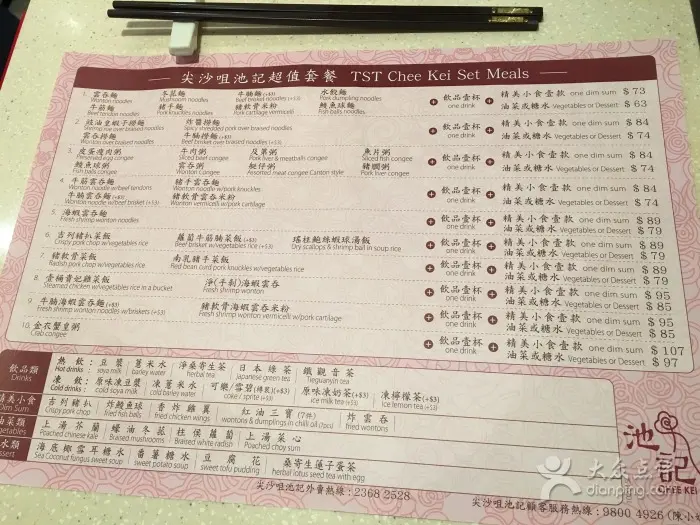 尖沙咀池記超值套餐 TST Chee Kei Set Meals
1. 雲吞麵 冬菰麵 牛腩麵(+$3) 水餃麵
Wonton noodles Mushroom noodles Beef brisket noodles(+$3) Pork dumpling noodles
牛筋麵 豬手麵 豬軟骨米粉 鯪魚球麵
Beef tendon noodles Pork knuckles noodles Pork cartilage vermicelli Fish balls noodles
+ 飲品壹杯 one drink + 精美小食壹款 one dim sum $ 73
油菜或糖水 Vegetables or Dessert $ 63
2. 豉油皇蝦子撈麵 炸醬撈麵
Shrimp roe over braised noodles Spicy shredded pork over braised noodles
雲吞撈麵 牛腩撈麵(+$3)
Wonton over braised noodles Beef brisket over braised noodles(+$3)
+ 飲品壹杯 one drink + 精美小食壹款 one dim sum $ 84
油菜或糖水 Vegetables or Dessert $ 74
3. 皮蛋瘦肉粥 牛肉粥 及第粥 魚片粥
Preserved egg congee Sliced beef congee Pork liver & meatballs congee Sliced fish congee
鯪魚球粥 雲吞粥 艇仔粥 豬膶粥
Fish balls congee Wonton congee Assorted meat congee Canton style Pork liver congee
+ 飲品壹杯 one drink + 精美小食壹款 one dim sum $ 84
油菜或糖水 Vegetables or Dessert $ 74
4. 牛筋雲吞麵 豬手雲吞麵
Wonton noodle w/beef tendons Wonton noodle w/pork knuckles
牛腩雲吞麵(+$3) 豬軟骨雲吞米粉
Wonton noodle w/beef brisket (+$3) Wonton vermicelli w/pork cartilage
+ 飲品壹杯 one drink + 精美小食壹款 one dim sum $ 84
油菜或糖水 Vegetables or Dessert $ 74
5. 海蝦雲吞麵
Fresh shrimp wonton noodles
+ 飲品壹杯 one drink + 精美小食壹款 one dim sum $ 89
油菜或糖水 Vegetables or Dessert $ 79
6. 吉列豬扒菜飯 蘿蔔牛筋腩菜飯(+$3) 瑤柱鮑絲蝦球湯飯
Crispy pork chop w/vegetables rice Beef brisket w/vegetables rice (+$3) Dry scallops & shrimp ball in soup rice
+ 飲品壹杯 one drink + 精美小食壹款 one dim sum $ 89
油菜或糖水 Vegetables or Dessert $ 79
7. 豬軟骨菜飯 南乳豬手菜飯
Radish pork chop w/vegetables rice Red bean curd pork knuckles w/vegetables rice
+ 飲品壹杯 one drink + 精美小食壹款 one dim sum $ 89
油菜或糖水 Vegetables or Dessert $ 79
8. 壹桶貴妃雞菜飯 淨(手剁)海蝦雲吞
Steamed chicken w/vegetables rice in a bucket Fresh shrimp wonton
+ 飲品壹杯 one drink + 精美小食壹款 one dim sum $ 95
油菜或糖水 Vegetables or Dessert $ 85
9. 牛腩海蝦雲吞麵(+$3) 豬軟骨海蝦雲吞米粉
Fresh shrimp wonton noodles w/briskets (+$3) Fresh shrimp wonton vermicelli w/pork cartilage
+ 飲品壹杯 one drink + 精美小食壹款 one dim sum $ 95
油菜或糖水 Vegetables or Dessert $ 85
10. 金衣蟹皇粥
Crab congee
+ 飲品壹杯 one drink + 精美小食壹款 one dim sum $ 107
油菜或糖水 Vegetables or Dessert $ 97
飲品類 Drinks
熱飲: 豆漿 薏米水 淨桑寄生茶 日本綠茶 鐵觀音茶
Hot drinks: soya milk barley water herbal tea Japanese green tea Tieguanyin tea
凍飲: 原味凍豆漿 凍薏米水 可樂/雪碧(樽裝)(+$3) 原味凍奶茶(+$3) 凍檸檬茶(+$3)
Cold drinks: cold soya milk cold barley water coke / sprite (+$3) ice milk tea (+$3) ice lemon tea (+$3)
精美小食 Dim Sum
吉列豬扒 炸鯪魚球 香炸雞翼 紅油三寶(7件) 炸雲吞
Crispy pork chop fried fish balls fried chicken wings wontons & dumplings in chilli oil (7pcs) fried wontons
油菜類 Vegetables
上湯芥蘭 蠔油冬菰 柱侯蘿蔔 上湯菜心
Poached chinese kale Braised mushrooms Braised white radish Poached choy sum
糖水類 Dessert
海底椰雪耳糖水 番薯糖水 豆腐花 桑寄生蓮子蛋茶
Sea Coconut fungus sweet soup sweet potato soup sweet tofu pudding herbal lotus seed tea with egg
尖沙咀池記外賣熱線: 2368 2528
尖沙咀池記顧客服務熱線: 9800 4926 (陳小
池記
CHEE KEI
大众点评
dianping.com